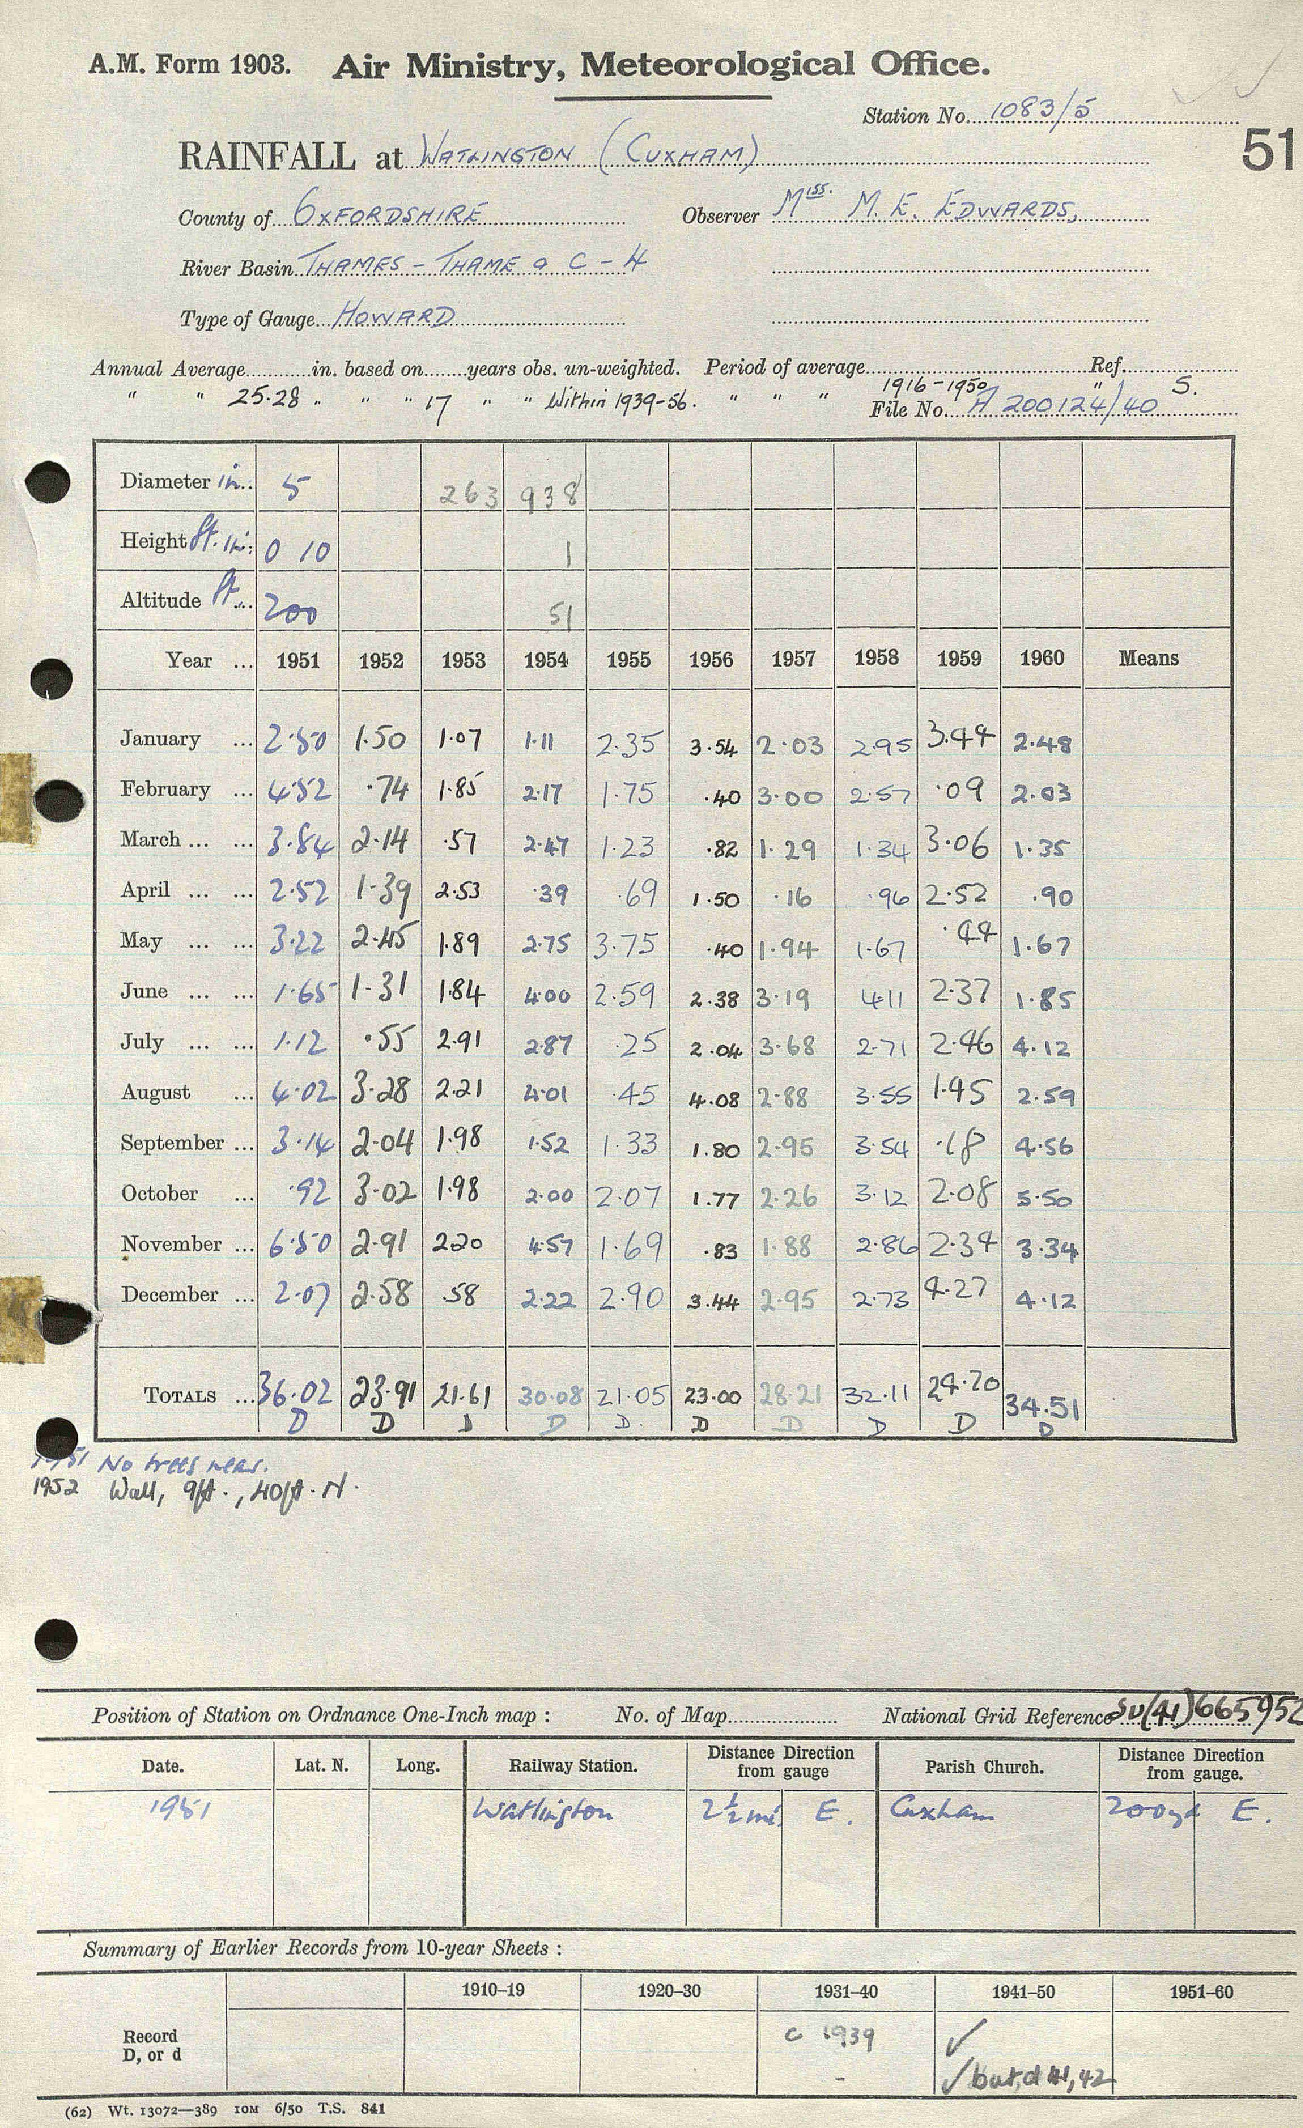 A.M. Form 1903. Air Ministry, Meteorological Office.
Station No. 1083/5
51
RAINFALL at WATLINGTON (CUXHAM)
County of OXFORDSHIRE Observer Miss. M. E. EDWARDS.
River Basin THAMES - THAME a C - H
Type of Gauge HOWARD
Annual Average in. based on years obs. un-weighted. Period of average Ref.
" " 25.28 " " " 17 " " Within 1939-56. " " " 1916-1950 " S.
File No. A 200124/40
Diameter in... 5 263 938
Height ft. in: 0 10 1
Altitude ft... 200 51
Year ... 1951 1952 1953 1954 1955 1956 1957 1958 1959 1960 Means
January ... 2.50 1.50 1.07 1.11 2.35 3.54 2.03 2.95 3.44 2.48
February ... 4.52 .74 1.85 2.17 1.75 .40 3.00 2.57 .09 2.03
March ... ... 3.84 2.14 .57 2.47 1.23 .82 1.29 1.34 3.06 1.35
April ... ... 2.52 1.39 2.53 .39 .69 1.50 .16 .96 2.52 .90
May ... ... 3.22 2.45 1.89 2.75 3.75 .40 1.94 1.67 .44 1.67
June ... ... 1.65 1.31 1.84 4.00 2.59 2.38 3.19 4.11 2.37 1.85
July ... ... 1.12 .55 2.91 2.87 .25 2.04 3.68 2.71 2.46 4.12
August ... 4.02 3.28 2.21 4.01 .45 4.08 2.88 3.55 1.45 2.59
September ... 3.14 2.04 1.98 1.52 1.33 1.80 2.95 3.54 .18 4.56
October ... .92 3.02 1.98 2.00 2.07 1.77 2.26 3.12 2.08 5.50
November ... 6.50 2.91 2.20 4.57 1.69 .83 1.88 2.86 2.34 3.34
December ... 2.07 2.58 .58 2.22 2.90 3.44 2.95 2.73 4.27 4.12
TOTALS ... 36.02 23.91 21.61 30.08 21.05 23.00 28.21 32.11 24.70 34.51
D D D D D D D D D D
1951 No trees near.
1952 Wall, 9ft., 40ft. N.
Position of Station on Ordnance One-Inch map : No. of Map National Grid Reference SU(41)665952
Date. Lat. N. Long. Railway Station. Distance Direction from gauge Parish Church. Distance Direction from gauge.
1951 Watlington 2½ mi. E. Cuxham 200 yd E.
Summary of Earlier Records from 10-year Sheets :
1910-19 1920-30 1931-40 1941-50 1951-60
Record D, or d c 1939 ✓
- ✓ but d 41, 42
(62) Wt. 13072—389 10M 6/50 T.S. 841